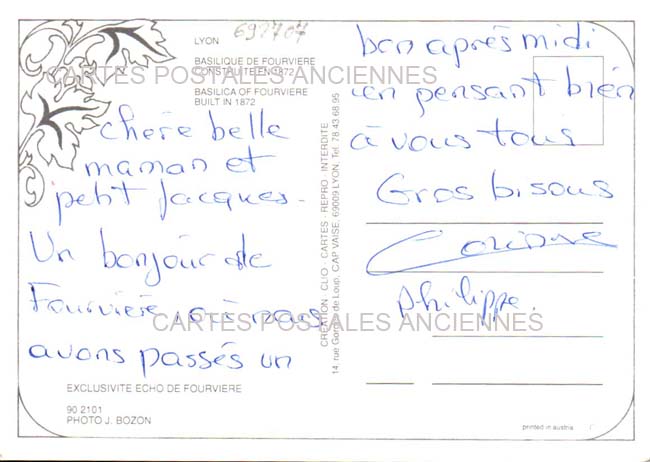 LYON
692707
BASILIQUE DE FOURVIERE
CONSTRUITE EN 1872
BASILICA OF FOURVIERE
BUILT IN 1872
CARTES POSTALES ANCIENNES
chère belle
maman et
petit Jacques -
Un bonjour de
Fourvière, où nous
avons passés un
EXCLUSIVITE ECHO DE FOURVIERE
90 2101
PHOTO J. BOZON
CREATION - CLIO - CARTES - REPRO - INTERDITE
14, rue Gorge de Loup, CAP VAISE, 69009 LYON, Tel. 78.43.68.95
bon après midi
en pensant bien
à vous tous
Gros bisous
Corinne
Philippe.
CARTES POSTALES ANCIENNES
printed in austria